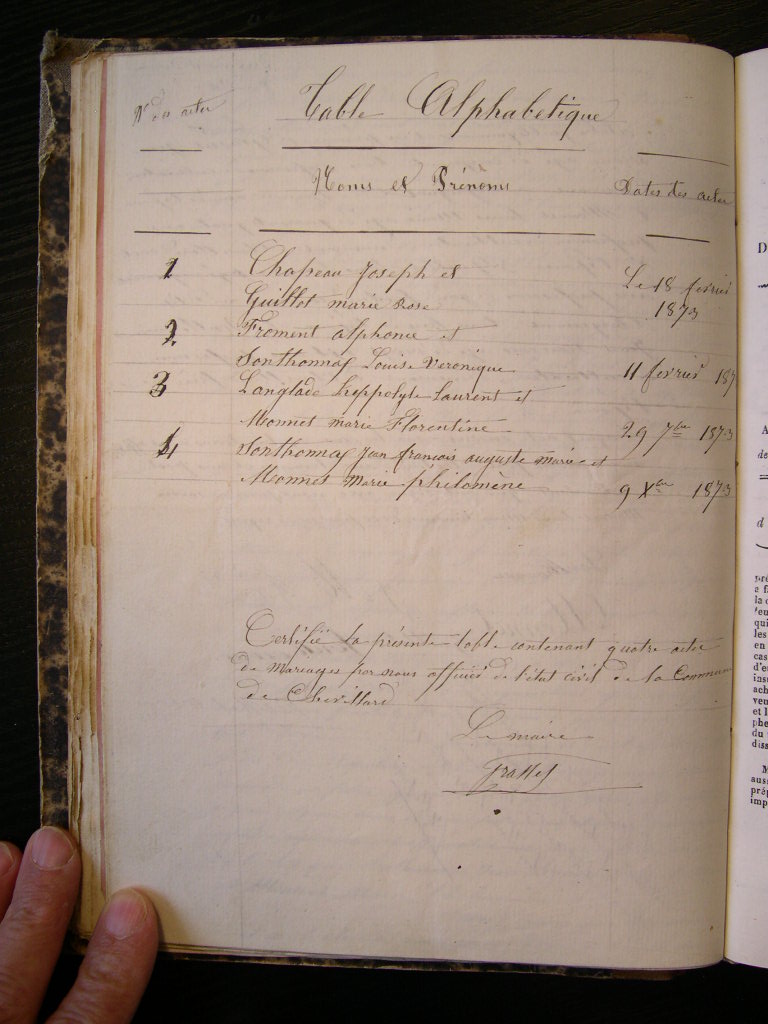 Nos des actes
Table Alphabetique
Noms et Prénoms
Dates des actes
1 Chapeau Joseph et
Guillot marie Rose
Le 18 fevrier
1873
2 Froment alphonse et
Sonthonnax Louise Veronique 11 fevrier 187
3 Langlade hyppolyte Laurent et
Monnet marie Florentine 29 7bre 1873
4 Sonthonnax Jean françois auguste marie et
Monnet Marie philomène 9 Xbre 1873
Certifié la présente table contenant quatre actes
de mariages par nous officier de l'état civil de la Commune
de Chevillard
Le maire
D
A
de
d
pré
a f
la
qui
les
en
cas
d'e
ach
et l
phe
du
diss
M
aus
pré
imp